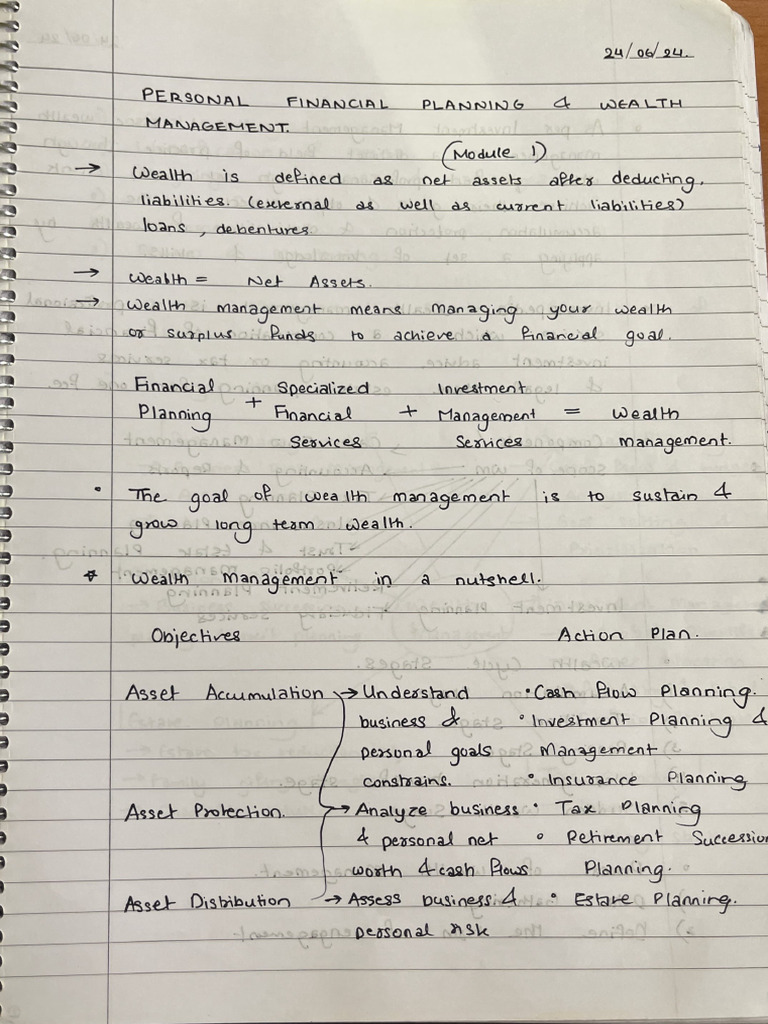 24/06/24.
PERSONAL FINANCIAL PLANNING & WEALTH
MANAGEMENT.
(Module 1)
→ Wealth is defined as net assets after deducting.
liabilities. (external as well as current liabilities)
loans, debentures.
→ Wealth = Net Assets.
→ Wealth management means managing your wealth
or surplus funds to achieve a financial goal.
Financial Specialized Investment
Planning + Financial + Management = Wealth
Services Services management.
• The goal of wealth management is to sustain &
grow long term wealth.
* Wealth Management in a nutshell.
Objectives Action Plan.
Asset Accumulation → Understand • Cash flow Planning.
business & • Investment Planning &
personal goals Management
constrains. • Insurance Planning
Asset Protection. → Analyze business • Tax Planning
& personal net • Retirement Succession
worth & cash flows Planning.
Asset Distribution → Assess business & • Estate Planning.
personal risk